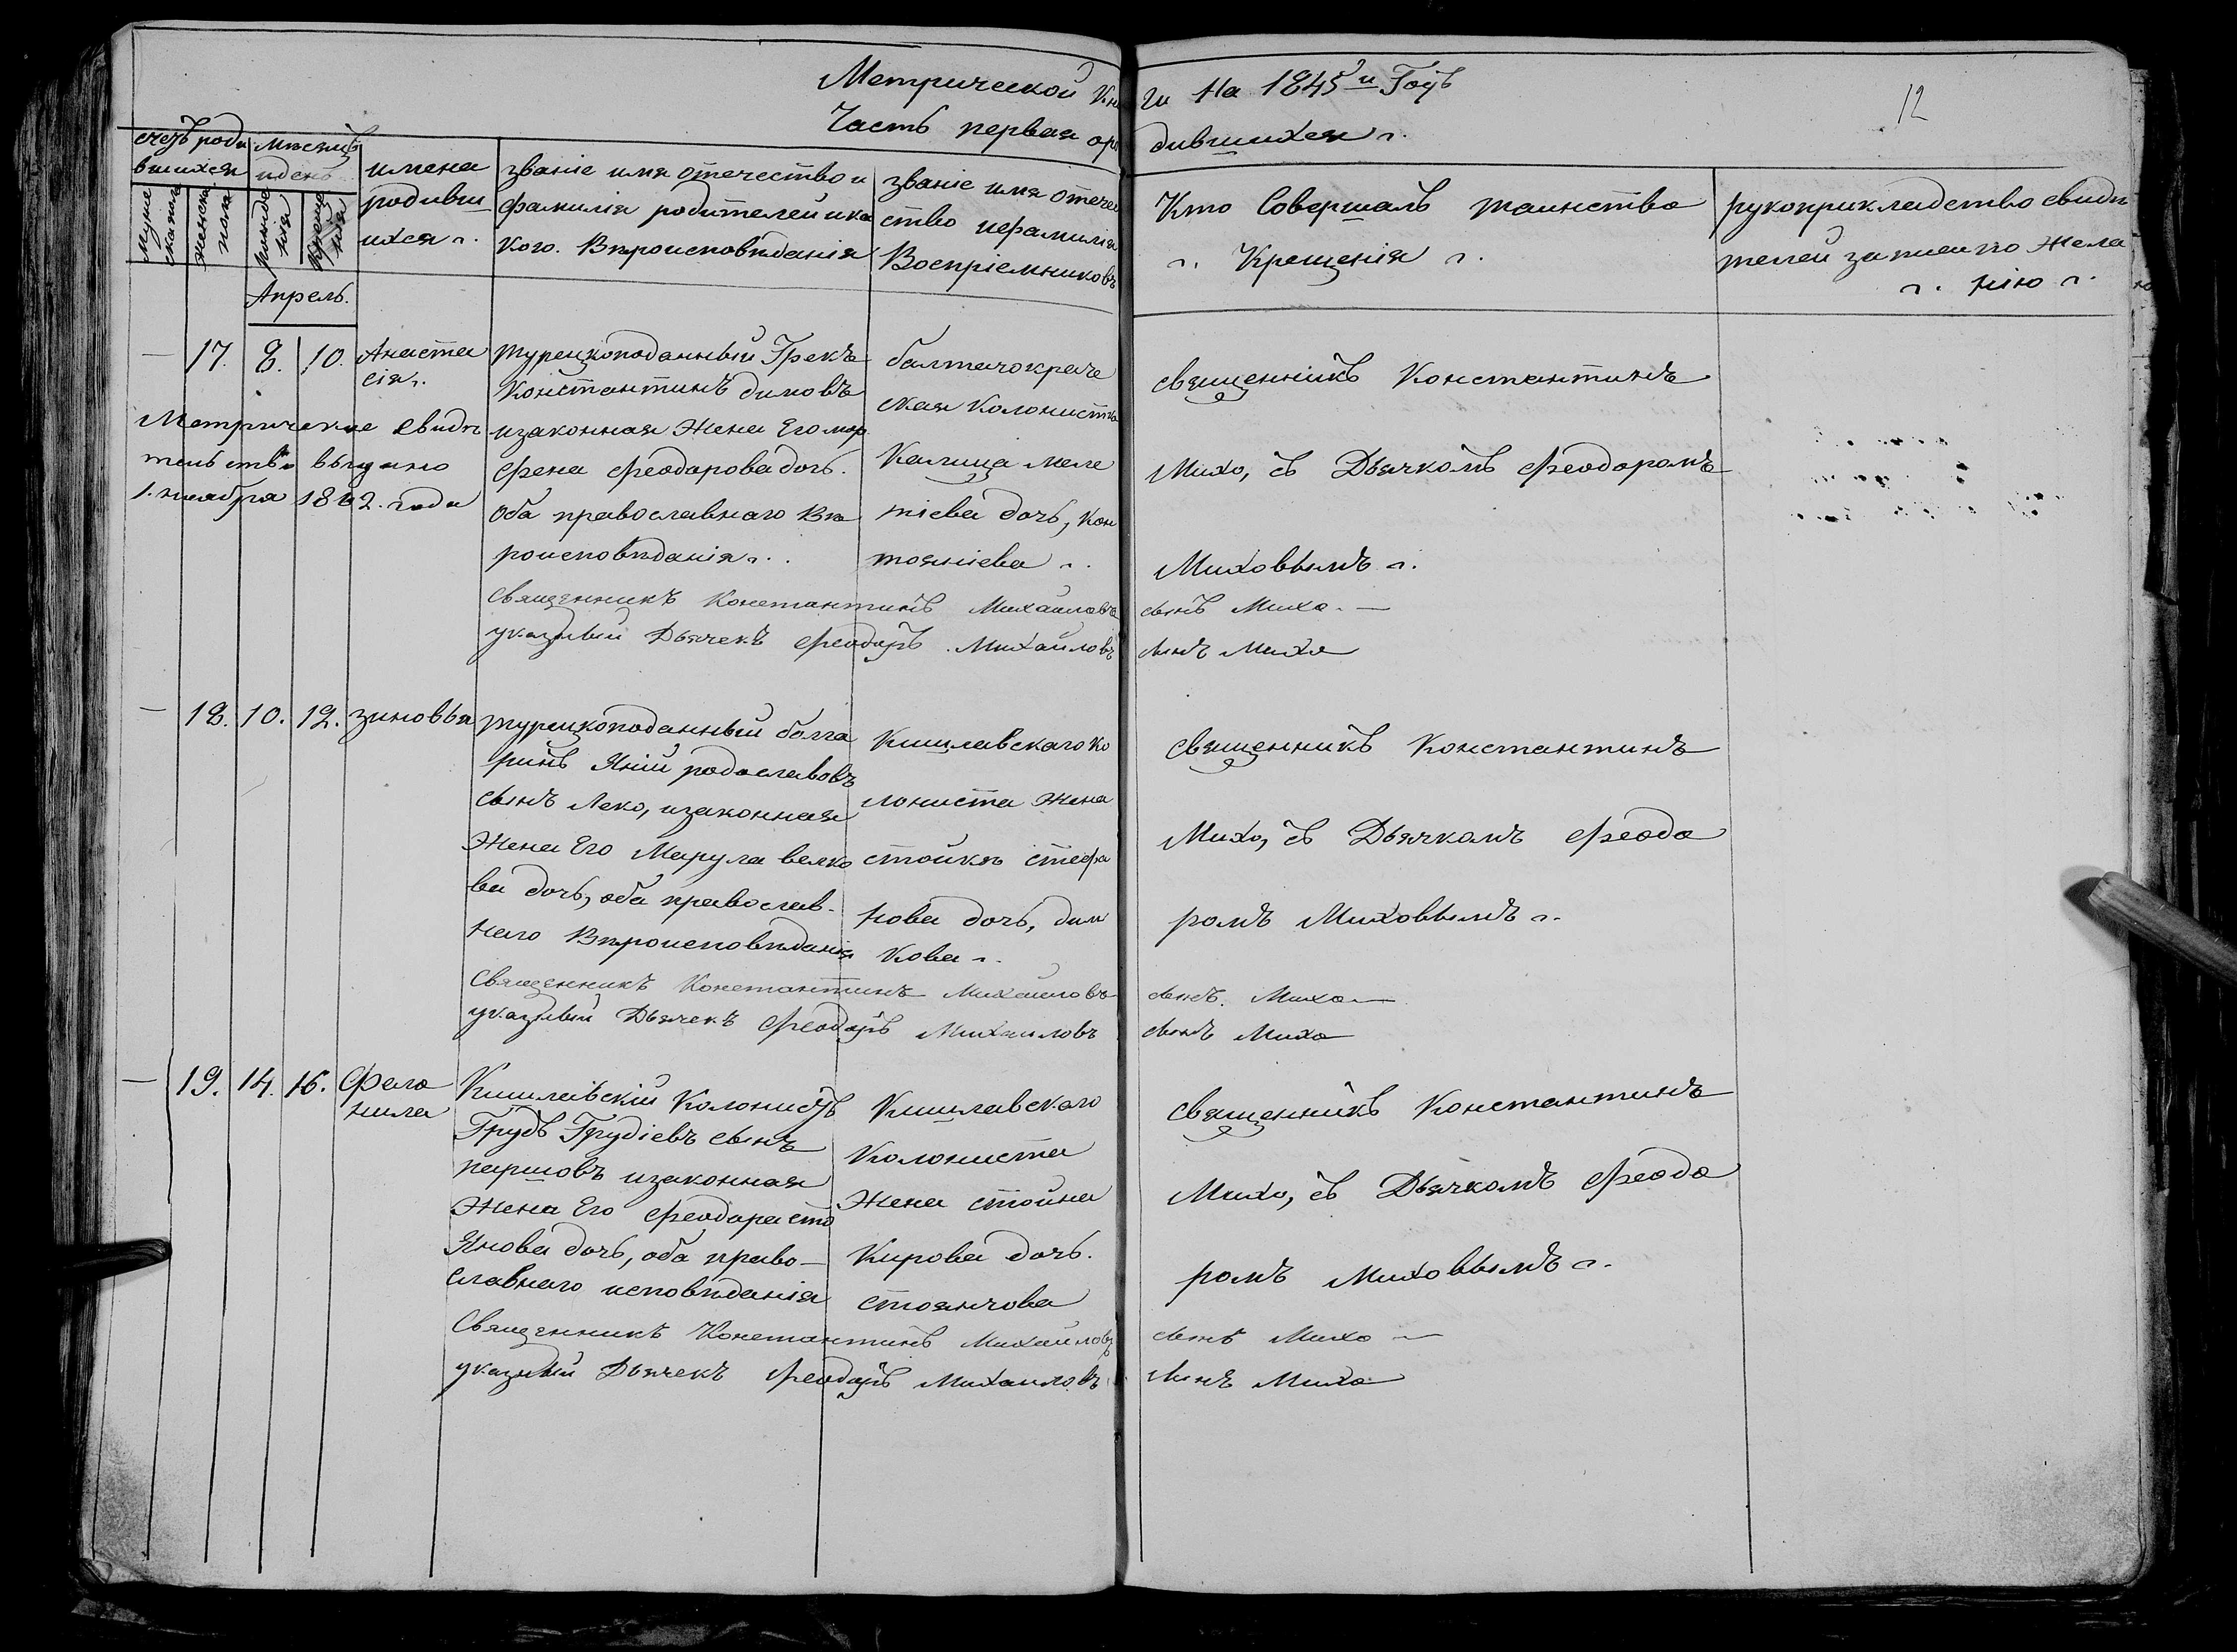 Метрической кни
ги на 1845й Годъ
12
Часть первая оро
дившихся
счетъ роди
вшихся
мужеска пола
женска пола
месяцъ
и день
рожденія
крещенія
имена
родивши
ихся
званіе имя отечество и
фамилія родителей и ка
кого. Вѣроисповѣданія
званіе имя отече
ство и фамилія
Воспріемниковъ
Кто Совершалъ таинство
Крещенія
рукоприкладство свидѣ
телей записи по жела
нію
Апрель.
— 17. 8. 10. Анаста
сія
турецкоподанный Грекъ
Константинъ димовъ
изаконная Жена Его мар
фена феодорова дочь.
оба православнаго Вѣ
роисповѣданія
балтачокраче
ская колонистка
Калица меле
тіева дочь, кон
тояніева
священникъ Константинъ
Михо, съ Дьячкомъ феодоромъ
Миховымъ
Метрическое свидѣ
тельство выдано
1. ноября 1862. года
Священникъ Константинъ Михаиловъ сынъ Михо. —
указный Дьячекъ феодоръ Михаиловъ сынъ Михо
— 18. 10. 12. зиновья
турецкоподанный болга
ринъ Яній родославовъ
сынъ Леко, изаконная
Жена Его Марула велко
ва дочь, оба православ-
наго Вѣроисповѣданія
Кишлавскаго ко
лониста жена
стойкъ стефа
нова дочь, дим
кова
священникъ Константинъ
Михо, съ Дьячкомъ феодо
ромъ Миховымъ
Священникъ Константинъ Михаиловъ сынъ. Михо —
указный Дьячекъ феодоръ Михаиловъ сынъ Михо
— 19. 14. 16. фело
нила
Кишлавскій Колонистъ
Грудъ Грудіевъ сынъ
паршовъ изаконная
Жена Его феодора сто
Янова дочь, оба право-
славнаго исповѣданія
Кишлавскаго
Колониста
Жена стойна
Кирова дочь.
стоянчова
священникъ Константинъ
Михо, съ Дьячкомъ феодо
ромъ Миховымъ
Священникъ Константинъ Михаиловъ сынъ Михо —
указный Дьячекъ феодоръ Михаиловъ сынъ Михо